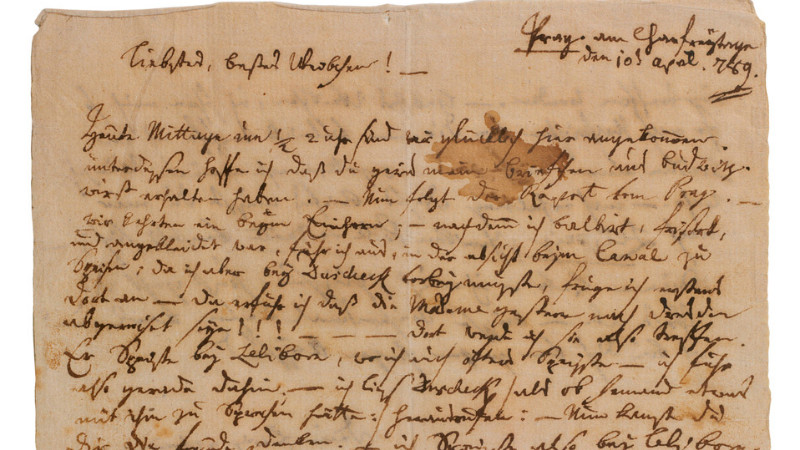 Prag. am Charfreytage
den 10:t April. 789.
liebstes, bestes Weibchen! —
Heute Mittags um 1/2 2 uhr sind wir glücklich hier angekommen.
unterdessen hoffe ich daß du gewis mein brieffchen aus budwitz.
wirst erhalten haben. — Nun folgt der Rapport von Prag. —
wir kehrten ein beym Einhorn; — nachdem ich balbirt, frisirt,
und angekleidet war, fuhr ich aus, in der absicht beym Canal zu
Speisen; da ich aber bey Duscheck vorbey musste, frug ich erstens
dort an — da erfuhr ich daß die Madame gestern nach dresden
abgereiset seye!!! — — dort werde ich sie also treffen.
Er Speiste bey Leliborn, wo ich auch öfters Speiste — ich fuhr
also gerade dahin. — ich lies Duscheck /als ob Jemand etwas
mit ihm zu Sprechen hätte: herausruffen: — Nun kannst du
dir die freude denken. — ich Speiste also bey Leliborn.